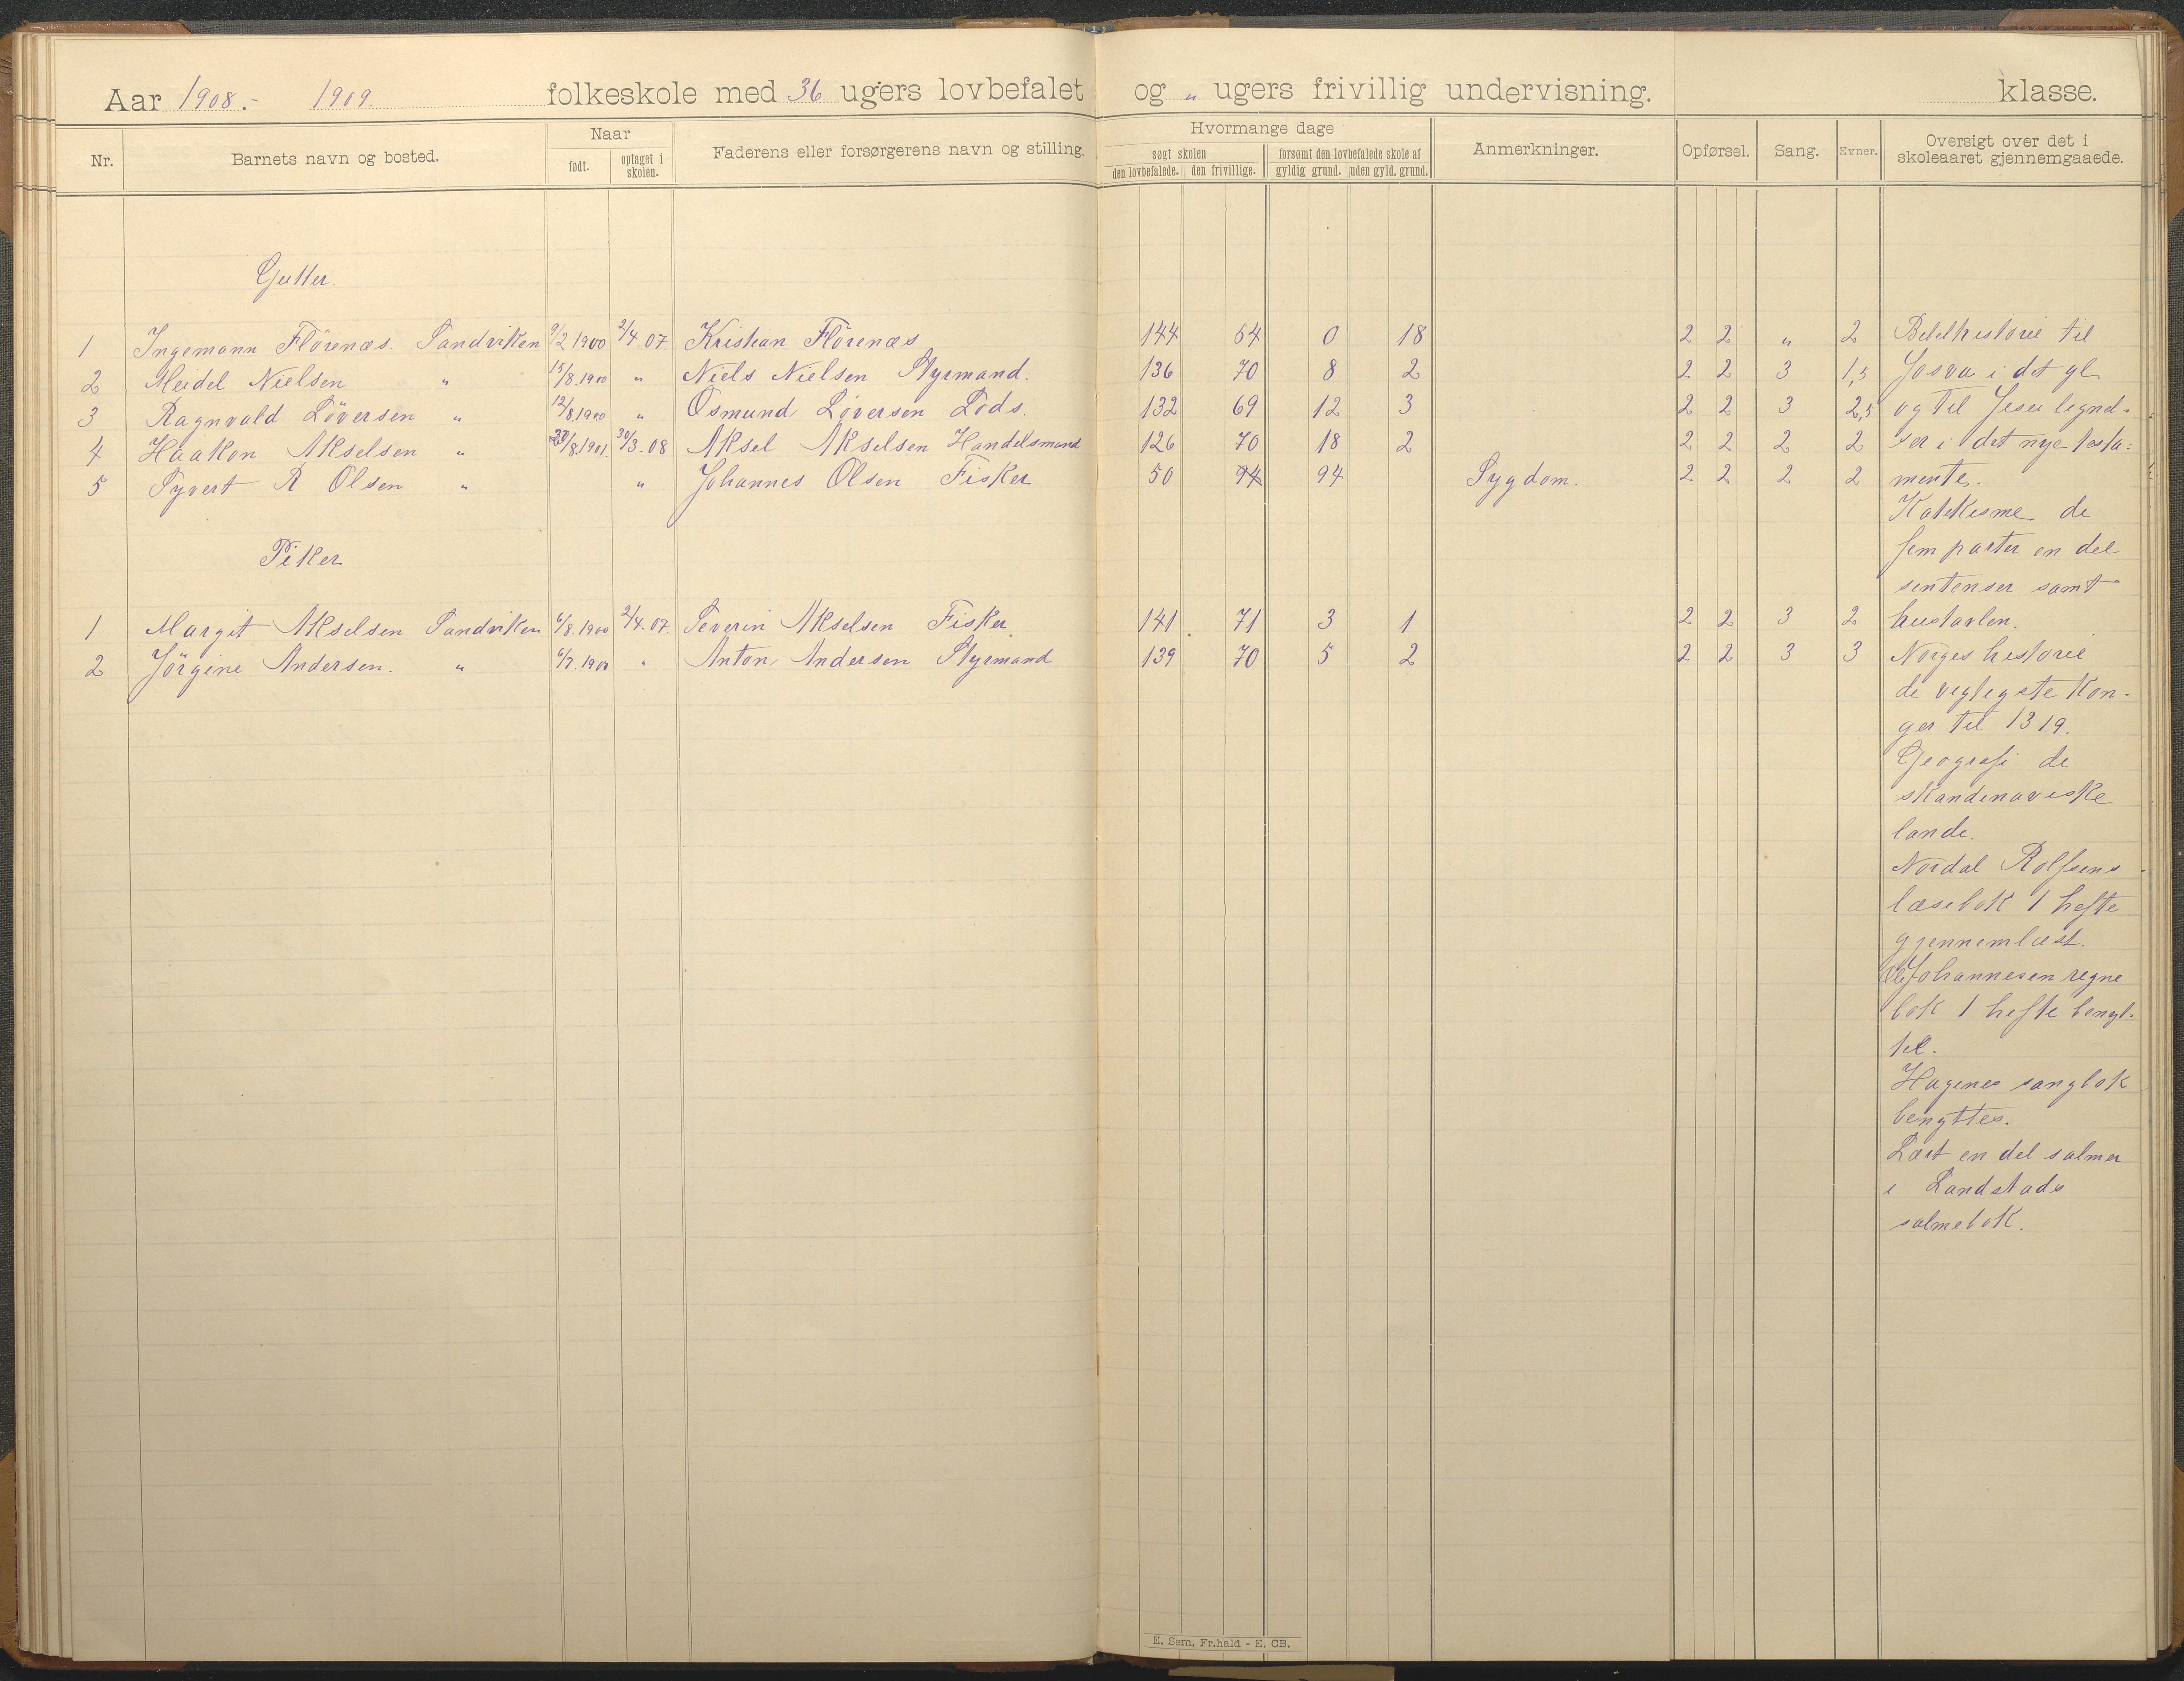 Aar 1908.- 1909 folkeskole med 36 ugers lovbefalet og " ugers frivillig undervisning. klasse.
Nr. Barnets navn og bosted. Naar født. optaget i skolen. Faderens eller forsørgerens navn og stilling. Hvormange dage søgt skolen den lovbefalede. den frivillige. forsømt den lovbefalede skole af gyldig grund. uden gyld. grund. Anmerkninger. Opførsel. Sang. Evner. Oversigt over det i skoleaaret gjennemgaaede.
Gutter.
1 Ingemann Flörenæs. Sandviken 9/2 1900 2/4.07. Kristian Flörenæs 144 54 0 18 2 2 " 2 Bibelhistorie til
2 Meidel Nielsen " 15/8.1900 " Niels Nielsen Styrmand. 136 70 8 2 2 2 3 1,5 Josva i det gl.
3 Ragnvald Löversen " 12/8.1900 " Osmund Löversen Lods. 132 69 12 3 2 2 3 2,5 og til Jesu lignel-
4 Haakon Akselsen " /8.1901. 30/3.08 Aksel Akselsen Handelsmand 126 70 18 2 2 2 2 2 ser i det nye testa-
5 Syvert R Olsen " " Johannes Olsen Fisker 50 94 94 Sygdom. 2 2 2 2 mente.
Katekisme de
Piker
fem parter en del
sentenser samt
1 Margit Akselsen Sandviken 6/8.1900 2/4.07. Severin Akselsen Fisker 141 71 3 1 2 2 3 2 hustavlen.
2 Jörgine Andersen. " 6/7.1900 " Anton Andersen Styrmand 139 70 5 2 2 2 3 3 Norges historie
de vigtigste kon-
ger til 1319.
Geografi de
skandinaviske
lande.
Nordal Rolfsens
læsebok 1 hefte
gjennemlæst.
Ole Johannesen regne
bok 1 hefte benyt-
tet.
Hagenes sangbok
benyttes.
Lært en del salmer
i Landstads
salmebok.
E. Sem, Fr.hald - E. CB.